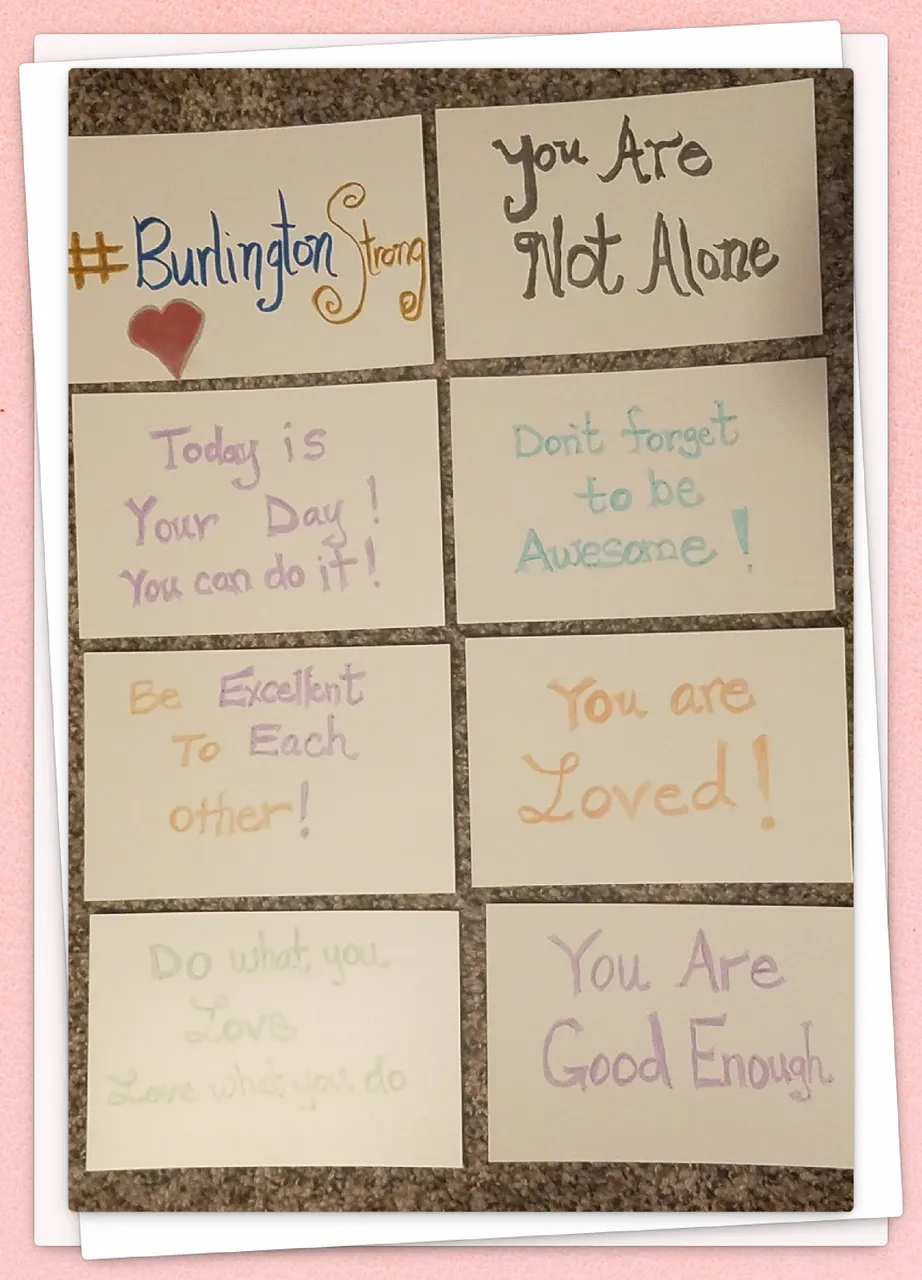 #BurlingtonStrong
You Are
Not Alone
Today is
Your Day!
You can do it!
Don't forget
to be
Awesome!
Be Excellent
To Each
other!
You are
Loved!
Do what you
Love
Love what you do
You Are
Good Enough